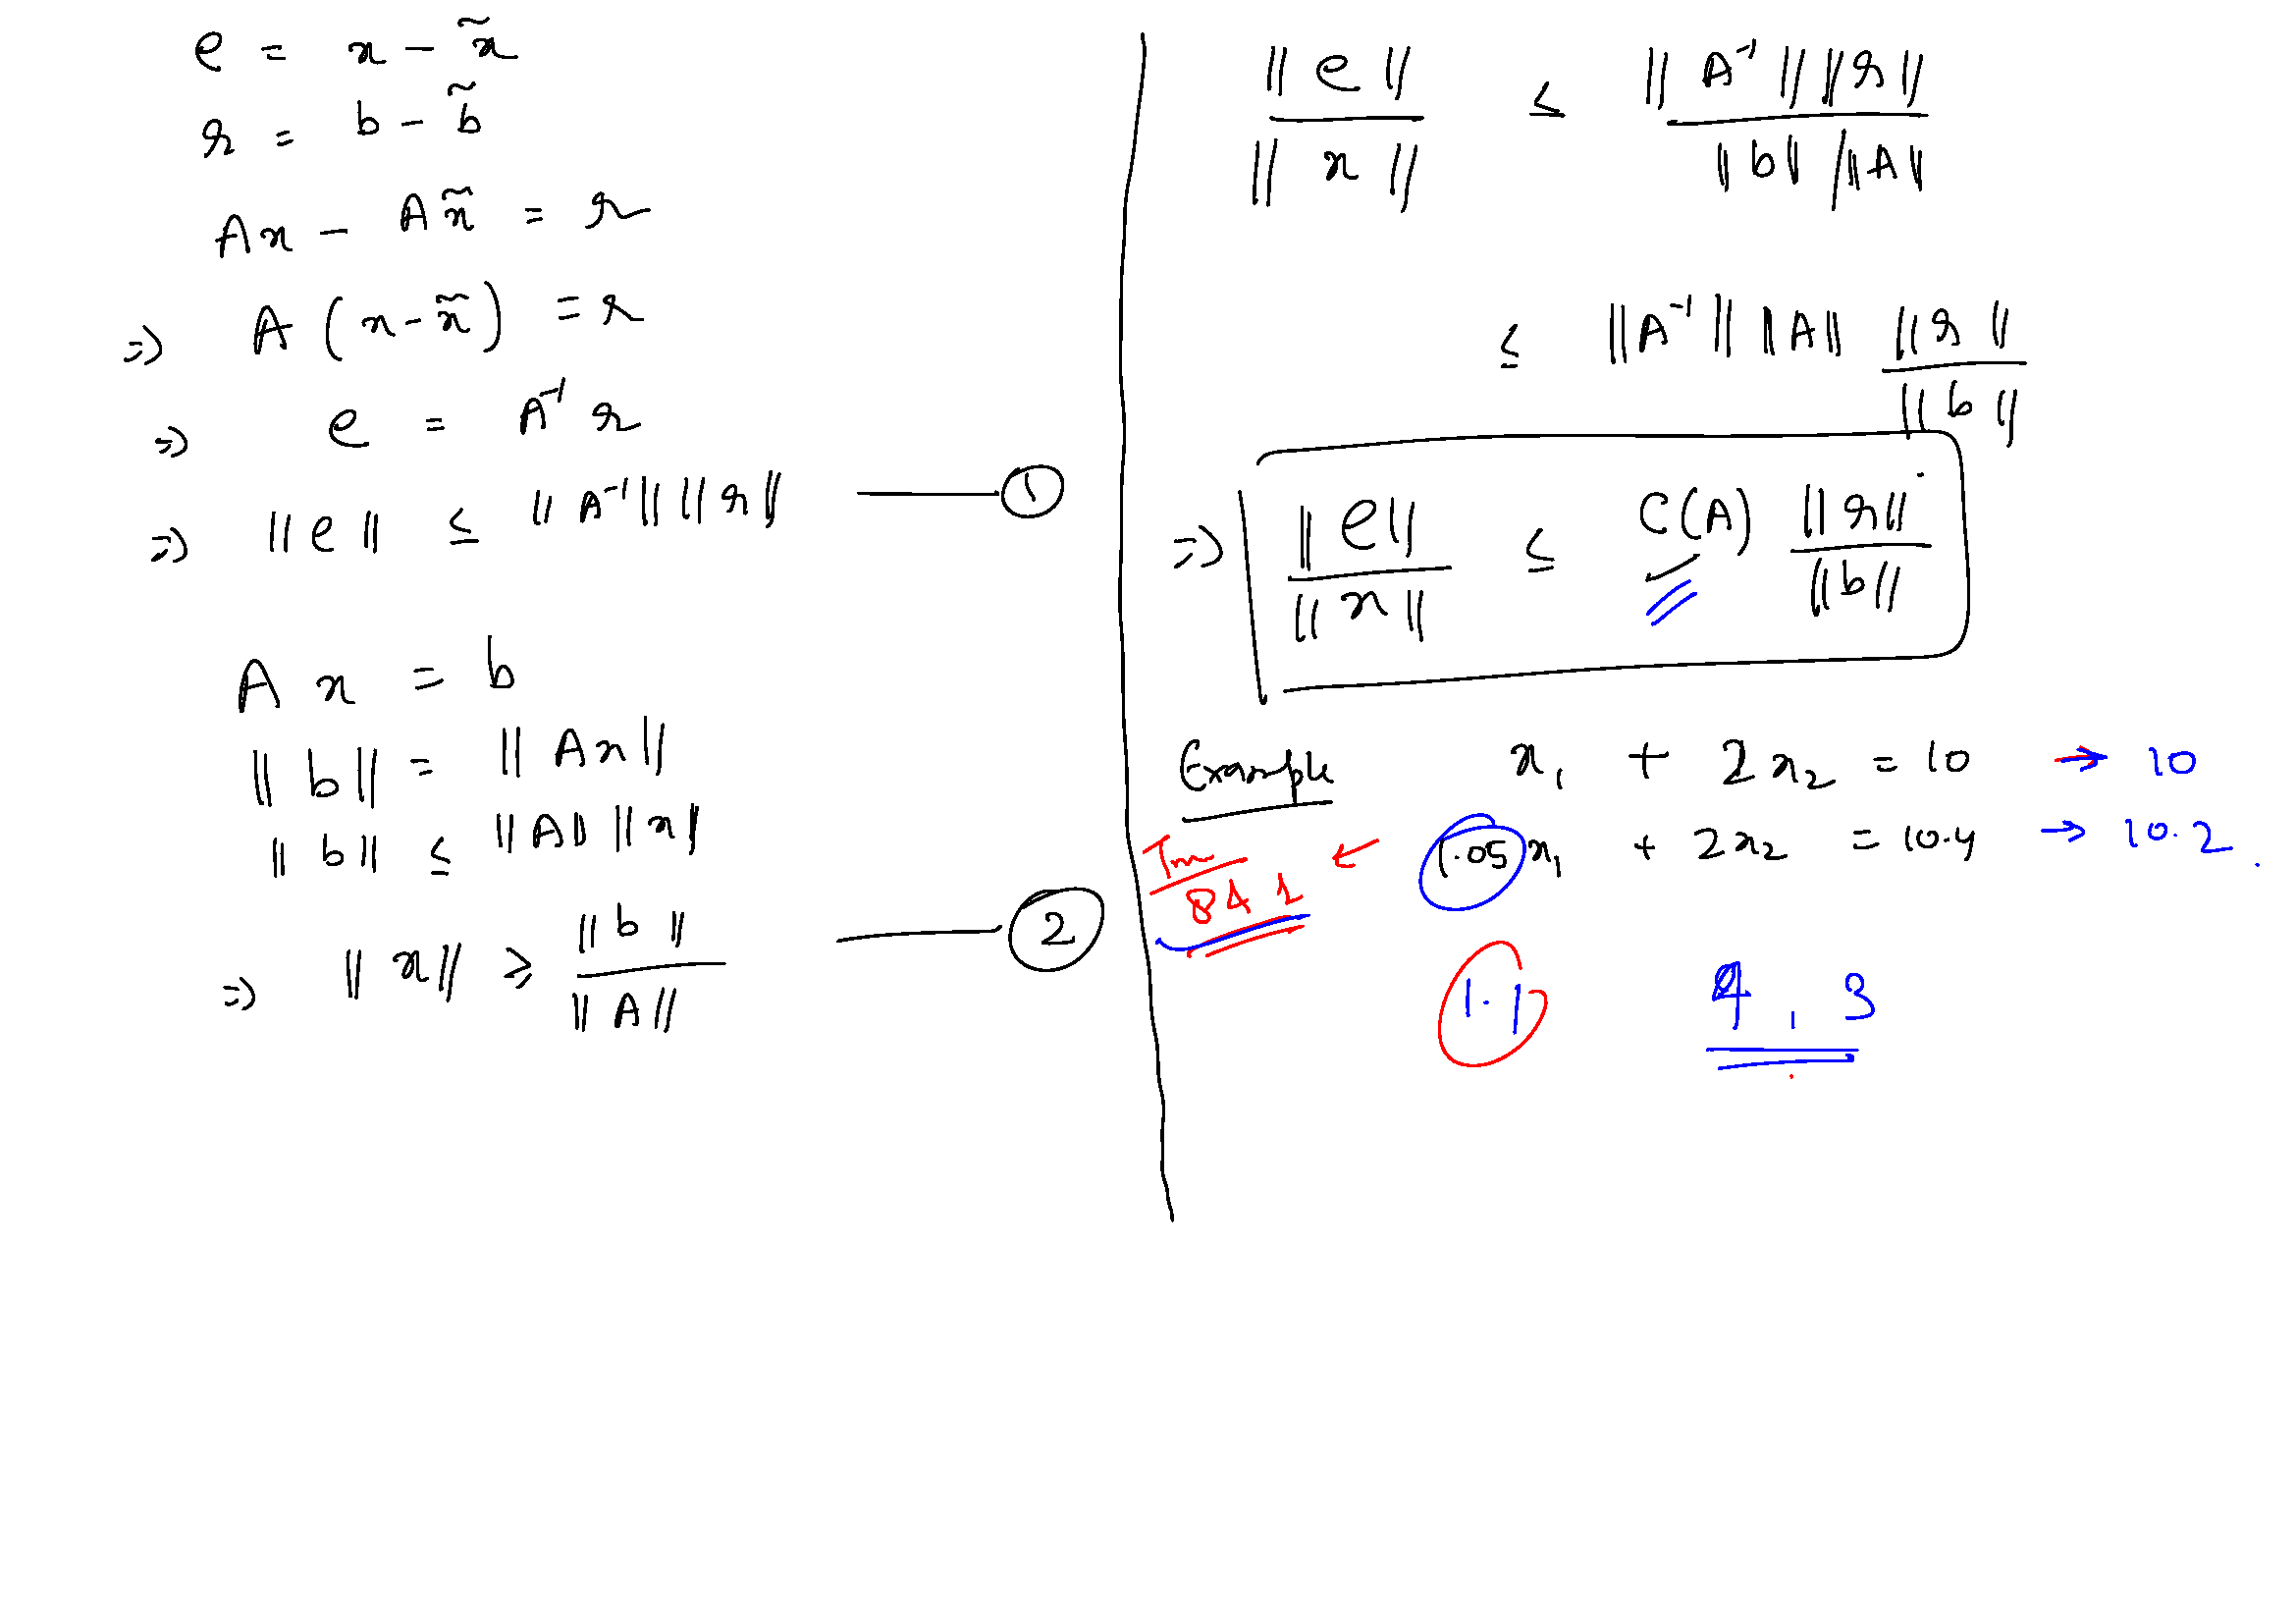 e = x - x̃
r = b - b̃
Ax - Ax̃ = r
⇒ A (x - x̃) = r
⇒ e = A⁻¹ r
⇒ ||e|| ≤ ||A⁻¹|| ||r|| — ①
A x = b
||b|| = ||Ax||
||b|| ≤ ||A|| ||x||
⇒ ||x|| ≥ ||b|| / ||A|| — ②
||e|| / ||x|| ≤ ||A⁻¹|| ||r|| / ||b|| / ||A||
≤ ||A⁻¹|| ||A|| ||r|| / ||b||
⇒ ||e|| / ||x|| ≤ C(A) ||r|| / ||b||
Example x₁ + 2x₂ = 10 → 10
← 1.05 x₁ + 2x₂ = 10.4 → 10.2
8 & 1
1.1 4, 3